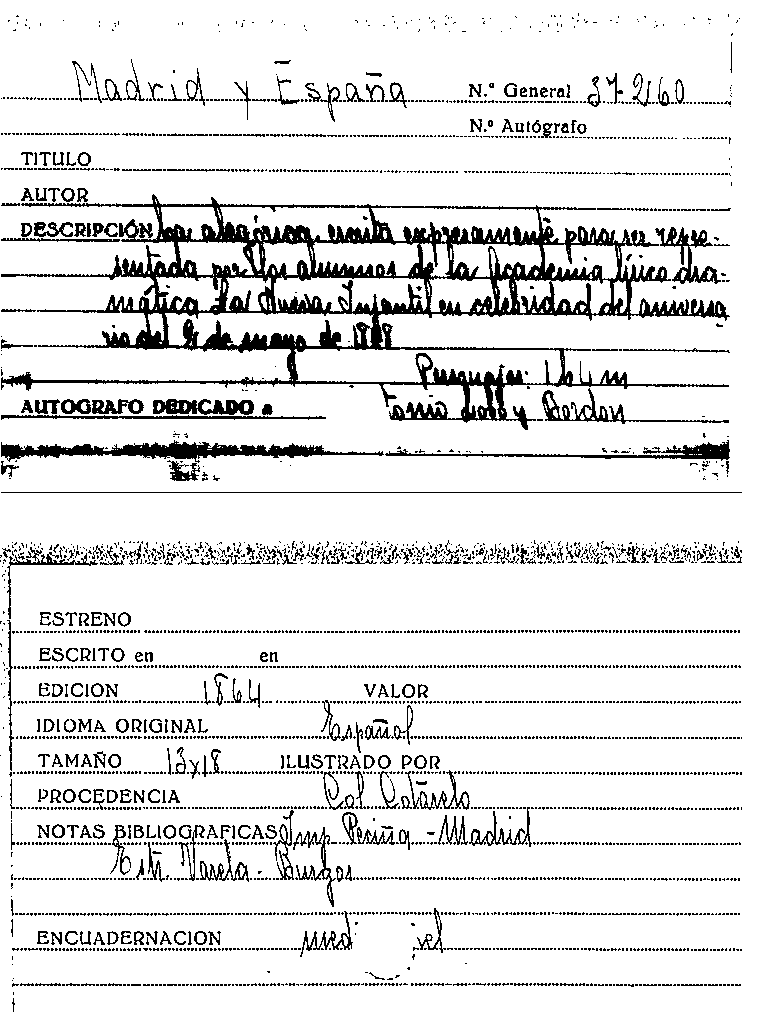 Madrid y España
N.º General 37-2160
N.º Autógrafo
TITULO
AUTOR
DESCRIPCIÓN Loa alegórica escrita expresamente para ser repre-
sentada por los alumnos de la Academia lírico dra-
mática La Musa Infantil en celebridad del aniversa
rio del 2 de mayo de
Personajes: 1 h 4 m
AUTOGRAFO DEDICADO a
ESTRENO
ESCRITO en en
EDICION 1864 VALOR
IDIOMA ORIGINAL Español
TAMAÑO 13x18 ILUSTRADO POR
PROCEDENCIA Col Cotarelo
NOTAS BIBLIOGRAFICAS Imp - Madrid
Estr. Varela - Burgos
ENCUADERNACION